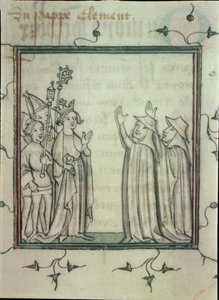 Du pappe Clement